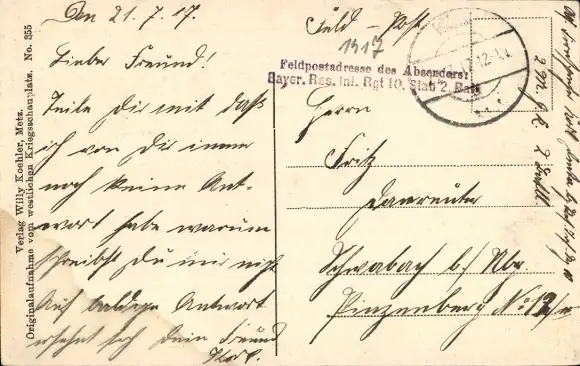 Den 21.7.17.
Lieber Freund!
Teile Dir mit daß
ich von Dir immer
noch keine Ant-
wort habe warum
schreibst Du mir nicht
Auf baldige Antwort
ersehnt sich Dein Freund
Feld-Post
1917
Feldpostadresse des Absenders:
Bayer. Res. Inf. Rgt 10. Stab 2. Batl.
12-1.N.
Herrn
Fritz
Schwabach b/ Nbg
Pinzenberg No 12
Verlag Willy Koehler, Metz.
Originalaufnahme vom westlichen Kriegsschauplatz. No. 355